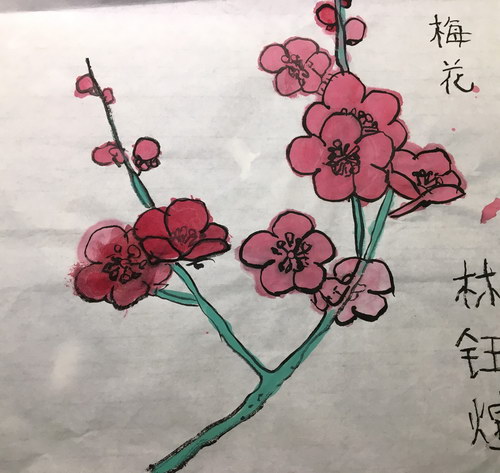 梅花
林钰